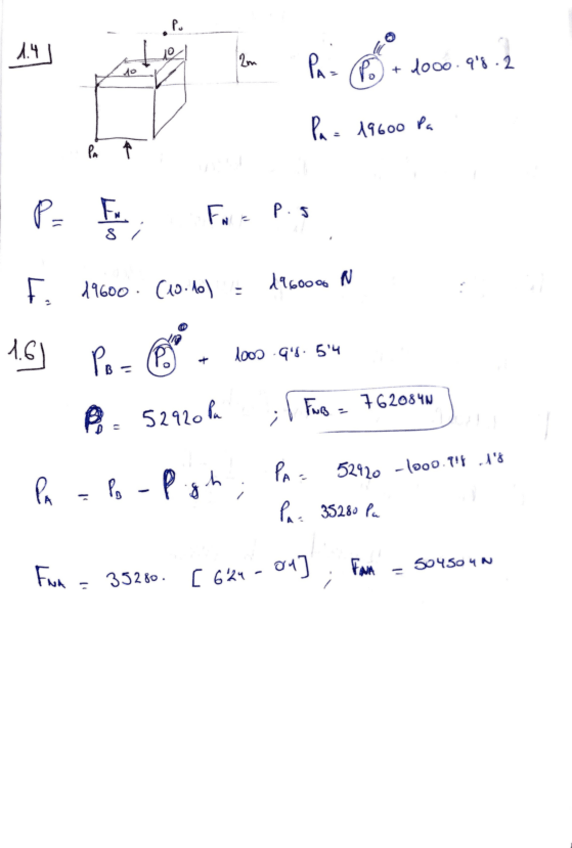 1.4]
P₀
10
10
2m
P_A
P_A = P₀ + 1000 · 9'8 · 2
P_A = 19600 Pa
P = F_N / S ; F_N = P · s
F = 19600 · (10·10) = 1960000 N
1.6] P_B = P₀ + 1000 · 9'8 · 5'4
P_B = 52920 Pa ; F_NB = 762084N
P_A = P_B - P·g·h ; P_A = 52920 - 1000 · 9'8 · 1'8
P_A = 35280 Pa
F_NA = 35280 · [6'24 - 0'1] ; F_NA = 504504N